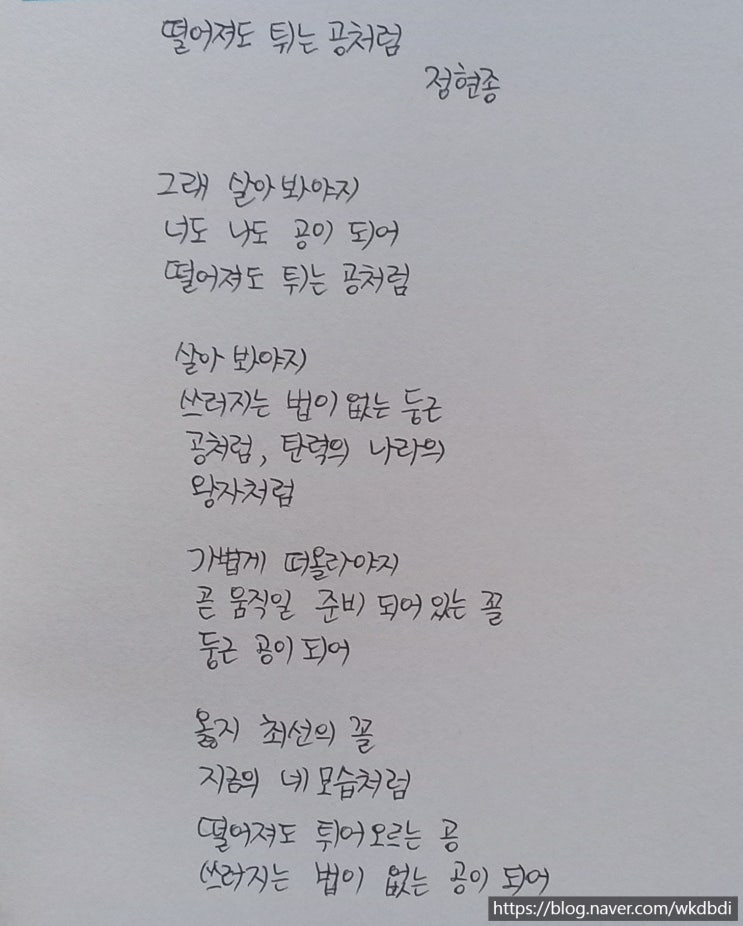 떨어져도 튀는 공처럼
정현종
그래 살아 봐야지
너도 나도 공이 되어
떨어져도 튀는 공처럼
살아 봐야지
쓰러지는 법이 없는 둥근
공처럼, 탄력의 나라의
왕자처럼
가볍게 떠올라야지
곧 움직일 준비 되어 있는 꼴
둥근 공이 되어
옳지 최선의 꼴
지금의 네 모습처럼
떨어져도 튀어 오르는 공
쓰러지는 법이 없는 공이 되어
https://blog.naver.com/wkdbdi